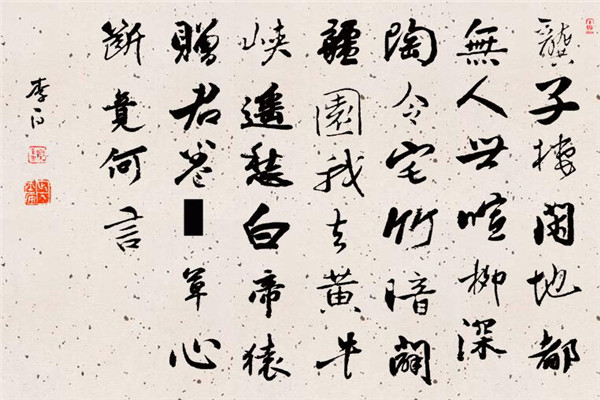 龔子棲閑地都
無人世喧柳深
陶令宅竹暗闢
疆園我去黃牛
峽遙愁白帝猿
贈君卷草心
斷竟何言
李白